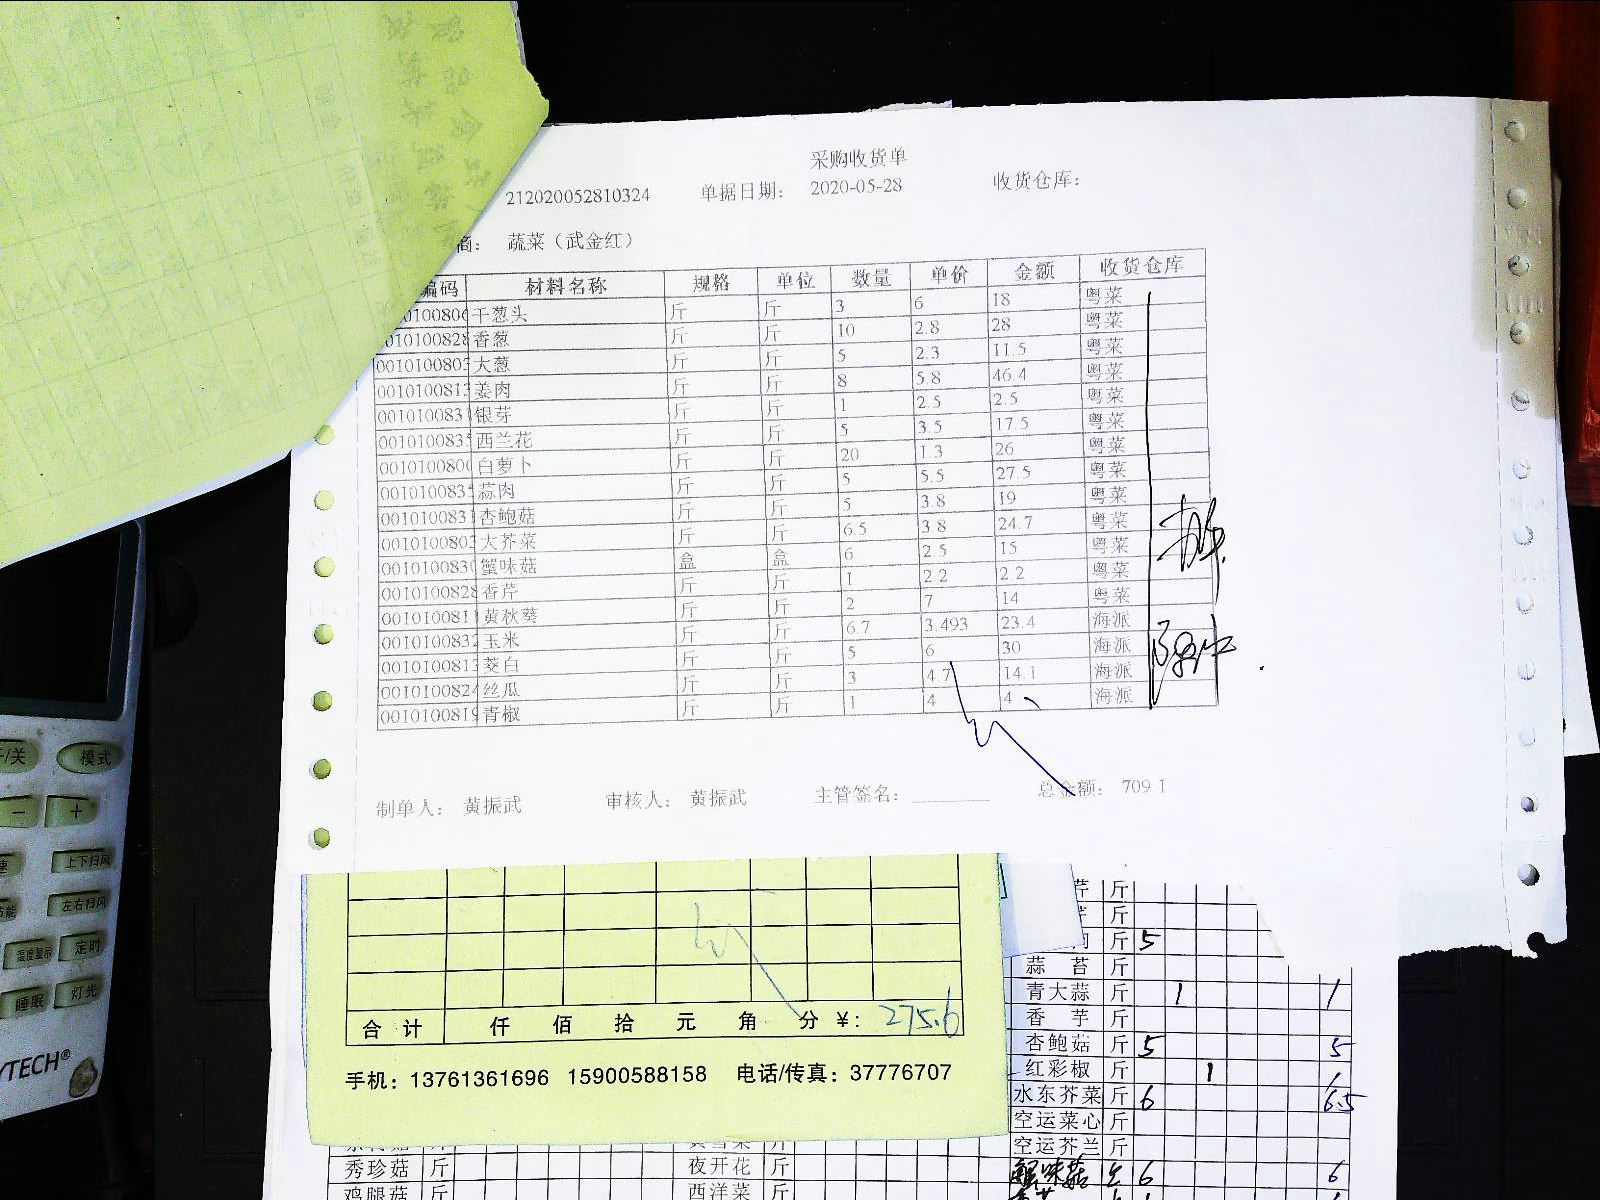 采购收货单
212020052810324 单据日期: 2020-05-28 收货仓库:
商: 蔬菜（武金红）
编码 材料名称 规格 单位 数量 单价 金额 收货仓库
干葱头 斤 斤 3 6 18 粤菜
香葱 斤 斤 10 2.8 28 粤菜
大葱 斤 斤 5 2.3 11.5 粤菜
姜肉 斤 斤 8 5.8 46.4 粤菜
银芽 斤 斤 1 2.5 2.5 粤菜
西兰花 斤 斤 5 3.5 17.5 粤菜
白萝卜 斤 斤 20 1.3 26 粤菜
蒜肉 斤 斤 5 5.5 27.5 粤菜
杏鲍菇 斤 斤 5 3.8 19 粤菜
大芥菜 斤 斤 6.5 3.8 24.7 粤菜
蟹味菇 盒 盒 6 2.5 15 粤菜
香芹 斤 斤 1 2.2 2.2 粤菜
黄秋葵 斤 斤 2 7 14 粤菜
玉米 斤 斤 6.7 3.493 23.4 海派
茭白 斤 斤 5 6 30 海派
丝瓜 斤 斤 3 4.7 14.1 海派
青椒 斤 斤 1 4 4 海派
制单人: 黄振武 审核人: 黄振武 主管签名: 总金额: 709.1
合计 仟 佰 拾 元 角 分 ¥: 275.6
手机: 13761361696 15900588158 电话/传真: 37776707
芹 斤
斤
斤 5
蒜苔 斤
青大蒜 斤 1 1
香芋 斤
杏鲍菇 斤 5 5
红彩椒 斤 1 1
水东芥菜 斤 6 6.5
空运菜心 斤
空运芥兰 斤
蟹味菇 6 6
秀珍菇 斤 夜开花 斤
鸡腿菇 斤 西洋菜 斤
开/关 模式
－ ＋
上下扫风
左右扫风
温度显示 定时
睡眠 灯光
YTECH®